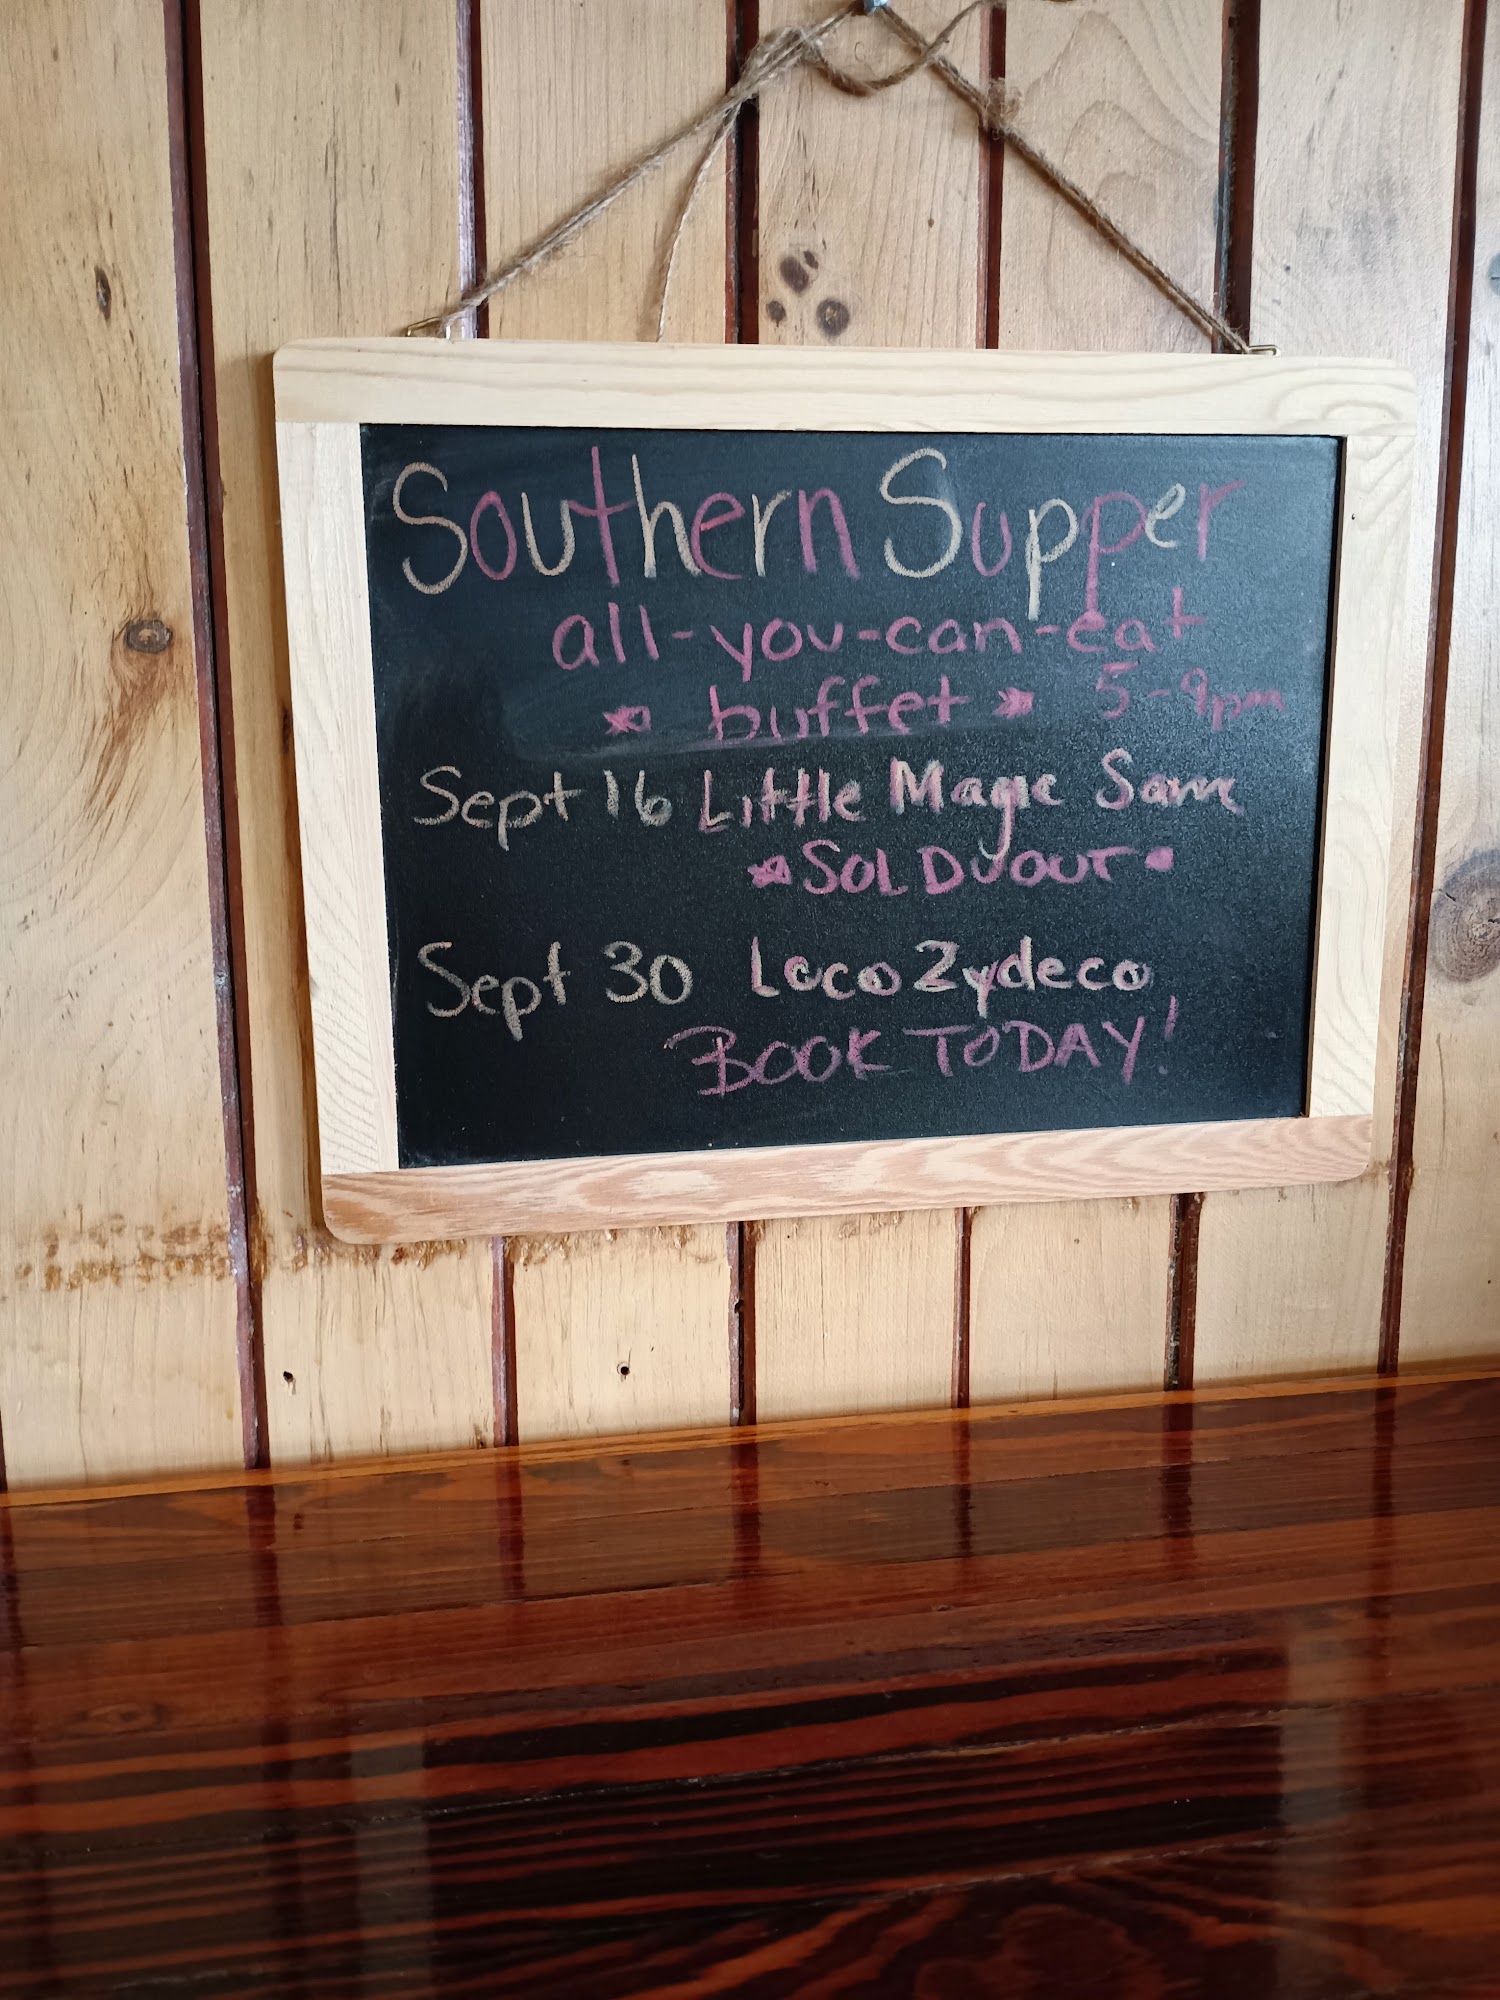 Southern Supper
all-you-can-eat
buffet 5-9pm
Sept 16 Little Magic Sam
SOLD OUT
Sept 30 Loco Zydeco
BOOK TODAY!